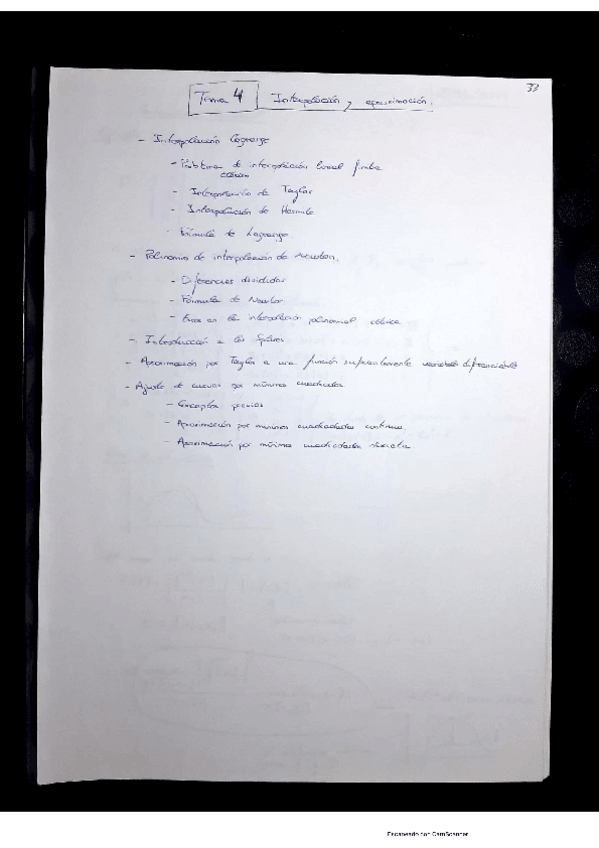 33
Tema 4 Interpolación y aproximación.
- Interpolación Lagrange
- Problema de interpolación lineal finita
clásico
- Interpolación de Taylor
- Interpolación de Hermite
- Fórmula de Lagrange
- Polinomio de interpolación de Newton.
- Diferencias divididas
- Fórmula de Newton
- Error en la interpolación polinomial clásica
- Introducción a los Splines
- Aproximación por Taylor a una función suficientemente diferenciable
- Ajuste de curvas por mínimos cuadrados
- Conceptos previos
- Aproximación por mínimos cuadrados continua
- Aproximación por mínimos cuadrados discreta
Escaneado con CamScanner